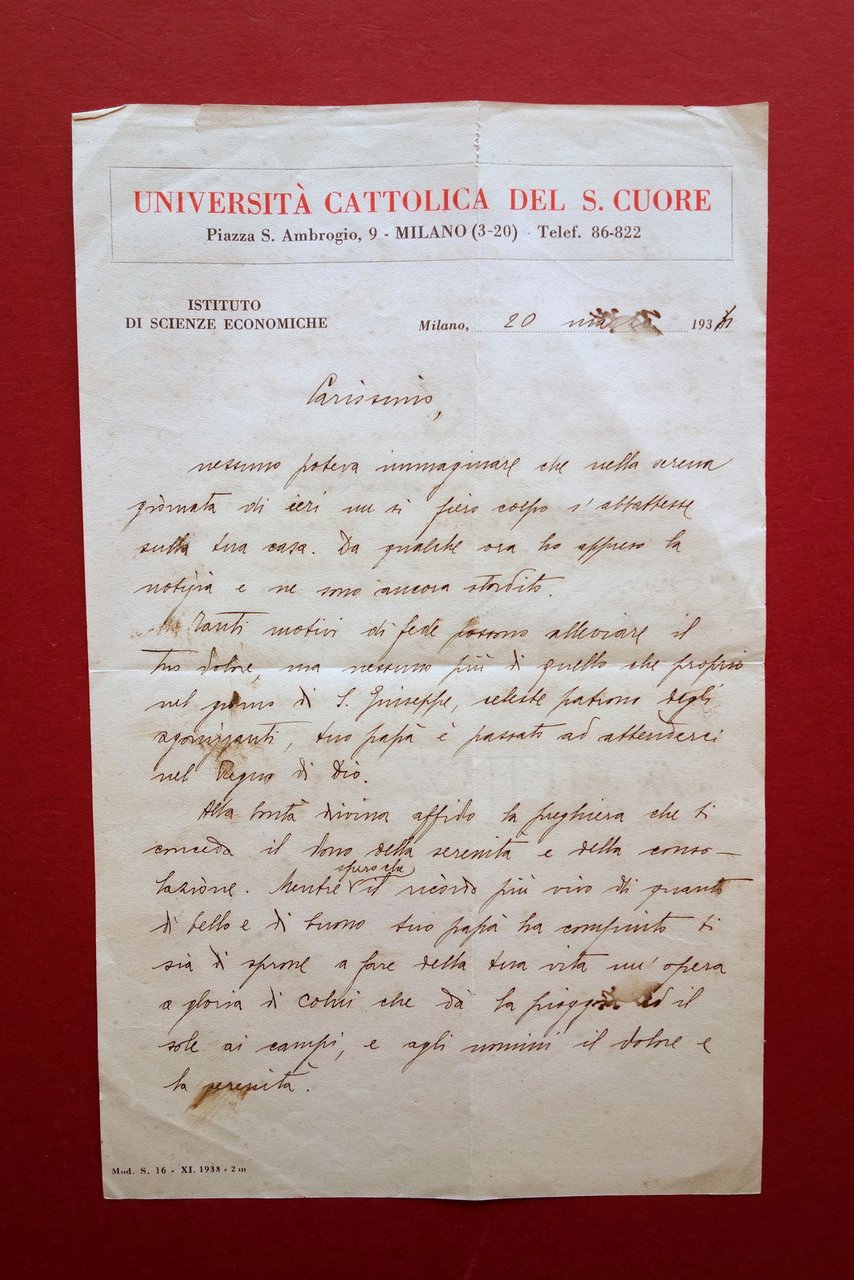 UNIVERSITÀ CATTOLICA DEL S. CUORE
Piazza S. Ambrogio, 9 - MILANO (3-20) - Telef. 86-822
ISTITUTO
DI SCIENZE ECONOMICHE
Milano, 20 marzo 193
Carissimo,
nessuno poteva immaginare che nella serena
giornata di ieri un sì fiero colpo s'abbattesse
sulla tua casa. Da qualche ora ho appreso la
notizia e ne sono ancora stordito.
Tanti motivi di fede possono alleviare il
tuo dolore, ma nessuno più di quello che proprio
nel giorno di S. Giuseppe, celeste patrono degli
agonizzanti, tuo papà è passato ad attenderci
nel Regno di Dio.
Alla bontà divina affido la preghiera che ti
conceda il dono della serenità e della conso-
lazione. Mentre spero che il ricordo più vivo di quanto
di bello e di buono tuo papà ha compiuto ti
sia di sprone a fare della tua vita un'opera
a gloria di Colui che dà la pioggia ed il
sole ai campi, e agli uomini il dolore e
la serenità.
Mod. S. 16 - XI. 1933 - 2 m